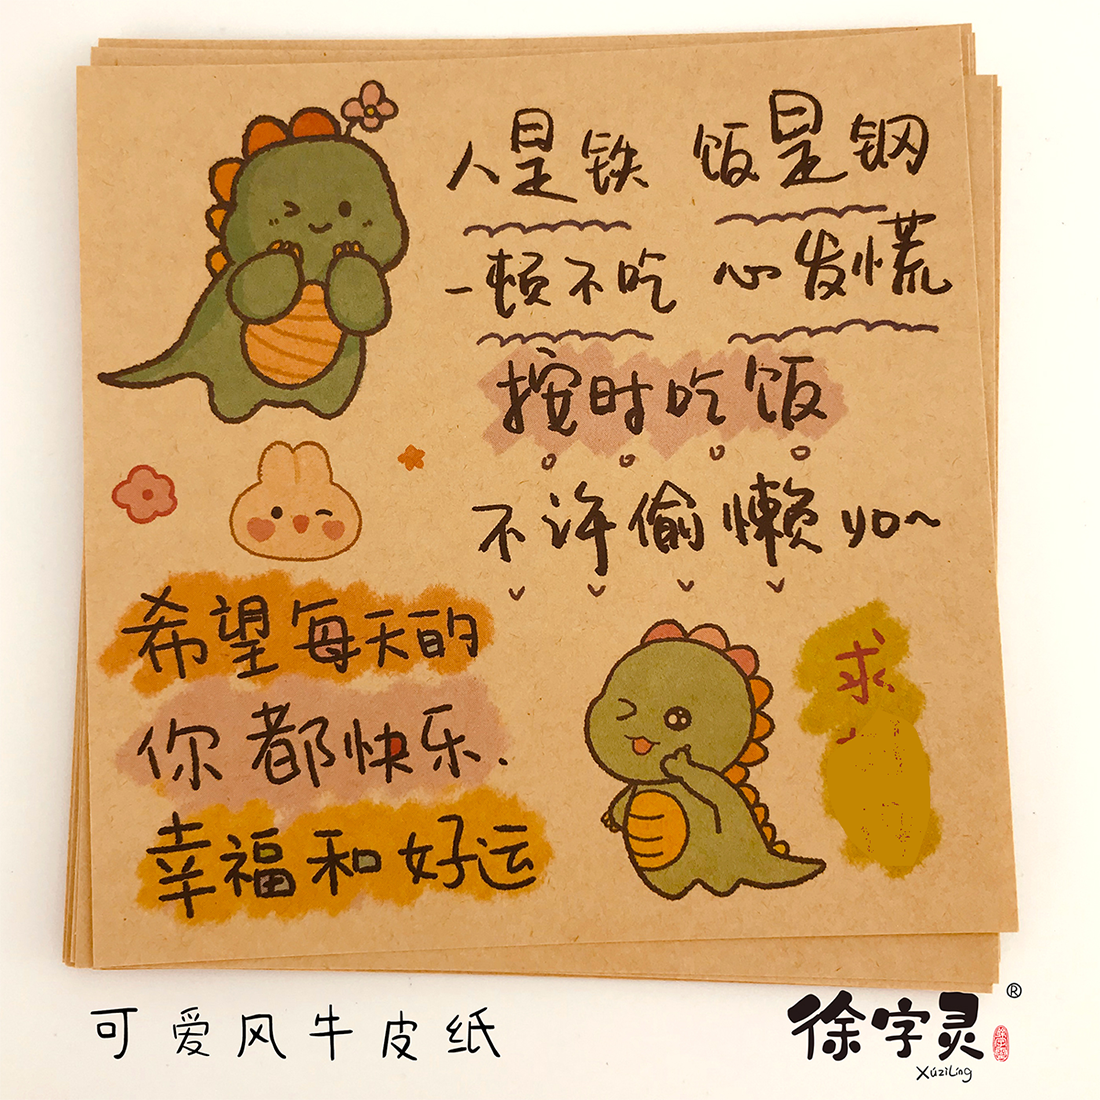 人是铁 饭是钢
一顿不吃 心发慌
按时吃饭
不许偷懒yo~
希望每天的
你都快乐.
幸福和好运
求
可爱风牛皮纸
徐字灵®
XúziLíng